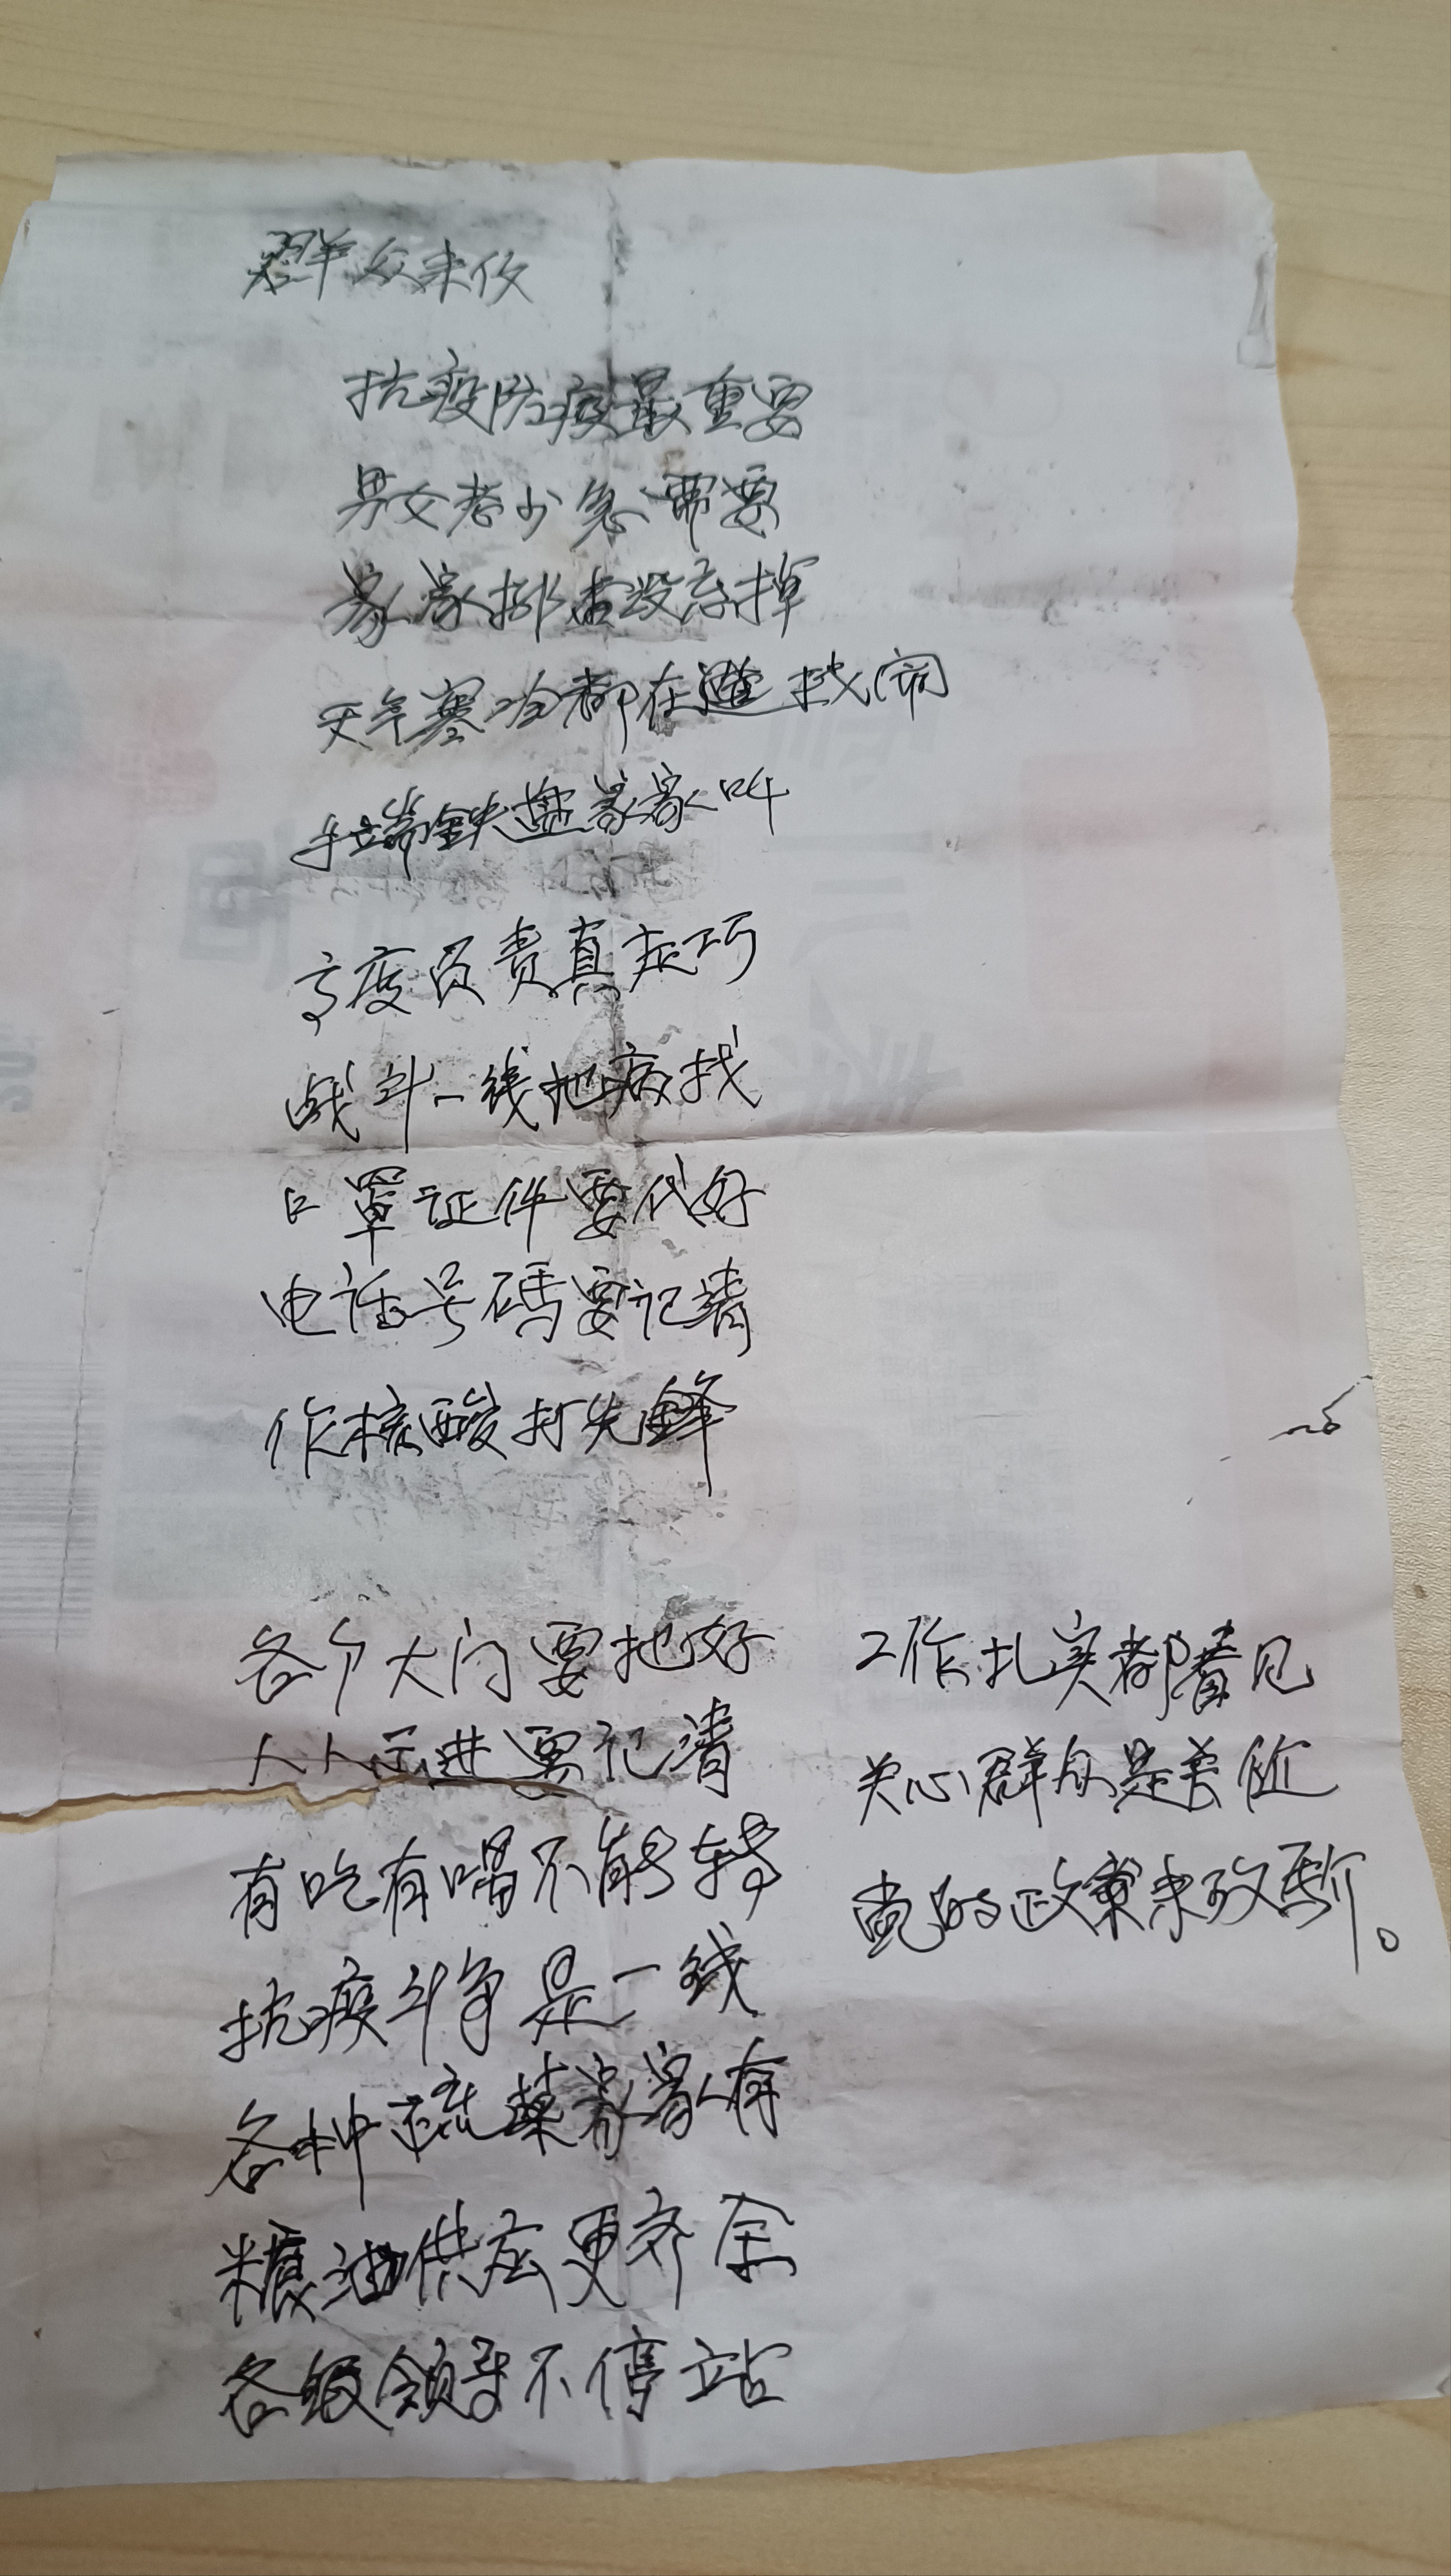 群众来
抗疫防疫最重要
男女老少急需要
家家排查没
天气寒冷都在
手端铁盘家家叫
负责真
战斗一线把病找
口罩证件要代好
电话号碼要记清
作核酸打先鋒
各个大门要把好
人人进要记清
有吃有喝不能转
抗疫斗争是一线
各种蔬菜家家有
粮油供应更齐全
各级领导不停站
工作扎实都看见
关心群众是
党的政策来